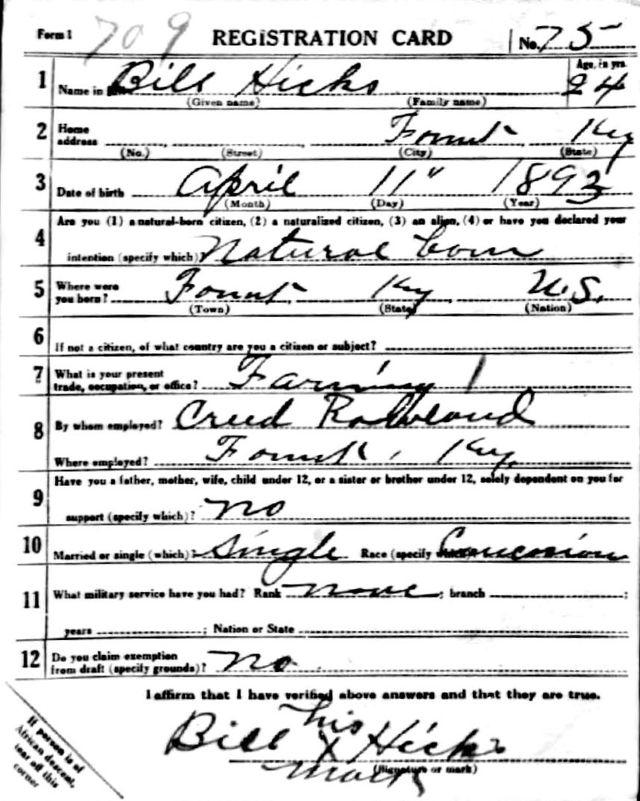 Form 1 709 REGISTRATION CARD No. 75
1 Name in Bill Hicks Age, in yrs. 24
(Given name) (Family name)
2 Home address Fount Ky
(No.) (Street) (City) (State)
3 Date of birth April 11" 1893
(Month) (Day) (Year)
4 Are you (1) a natural-born citizen, (2) a naturalized citizen, (3) an alien, (4) or have you declared your
intention (specify which)? Natural born
5 Where were you born? Fount Ky U.S.
(Town) (State) (Nation)
6 If not a citizen, of what country are you a citizen or subject?
7 What is your present trade, occupation, or office? Farming 1
8 By whom employed? Creed
Where employed? Fount, Ky
9 Have you a father, mother, wife, child under 12, or a sister or brother under 12, solely dependent on you for
support (specify which)? no
10 Married or single (which)? Single Race (specify which)? Caucasian
11 What military service have you had? Rank none; branch ;
years ; Nation or State
12 Do you claim exemption from draft (specify grounds)? no.
I affirm that I have verified above answers and that they are true.
his
Bill X Hicks
mark
(Signature or mark)
If person is of
African descent,
tear off this
corner